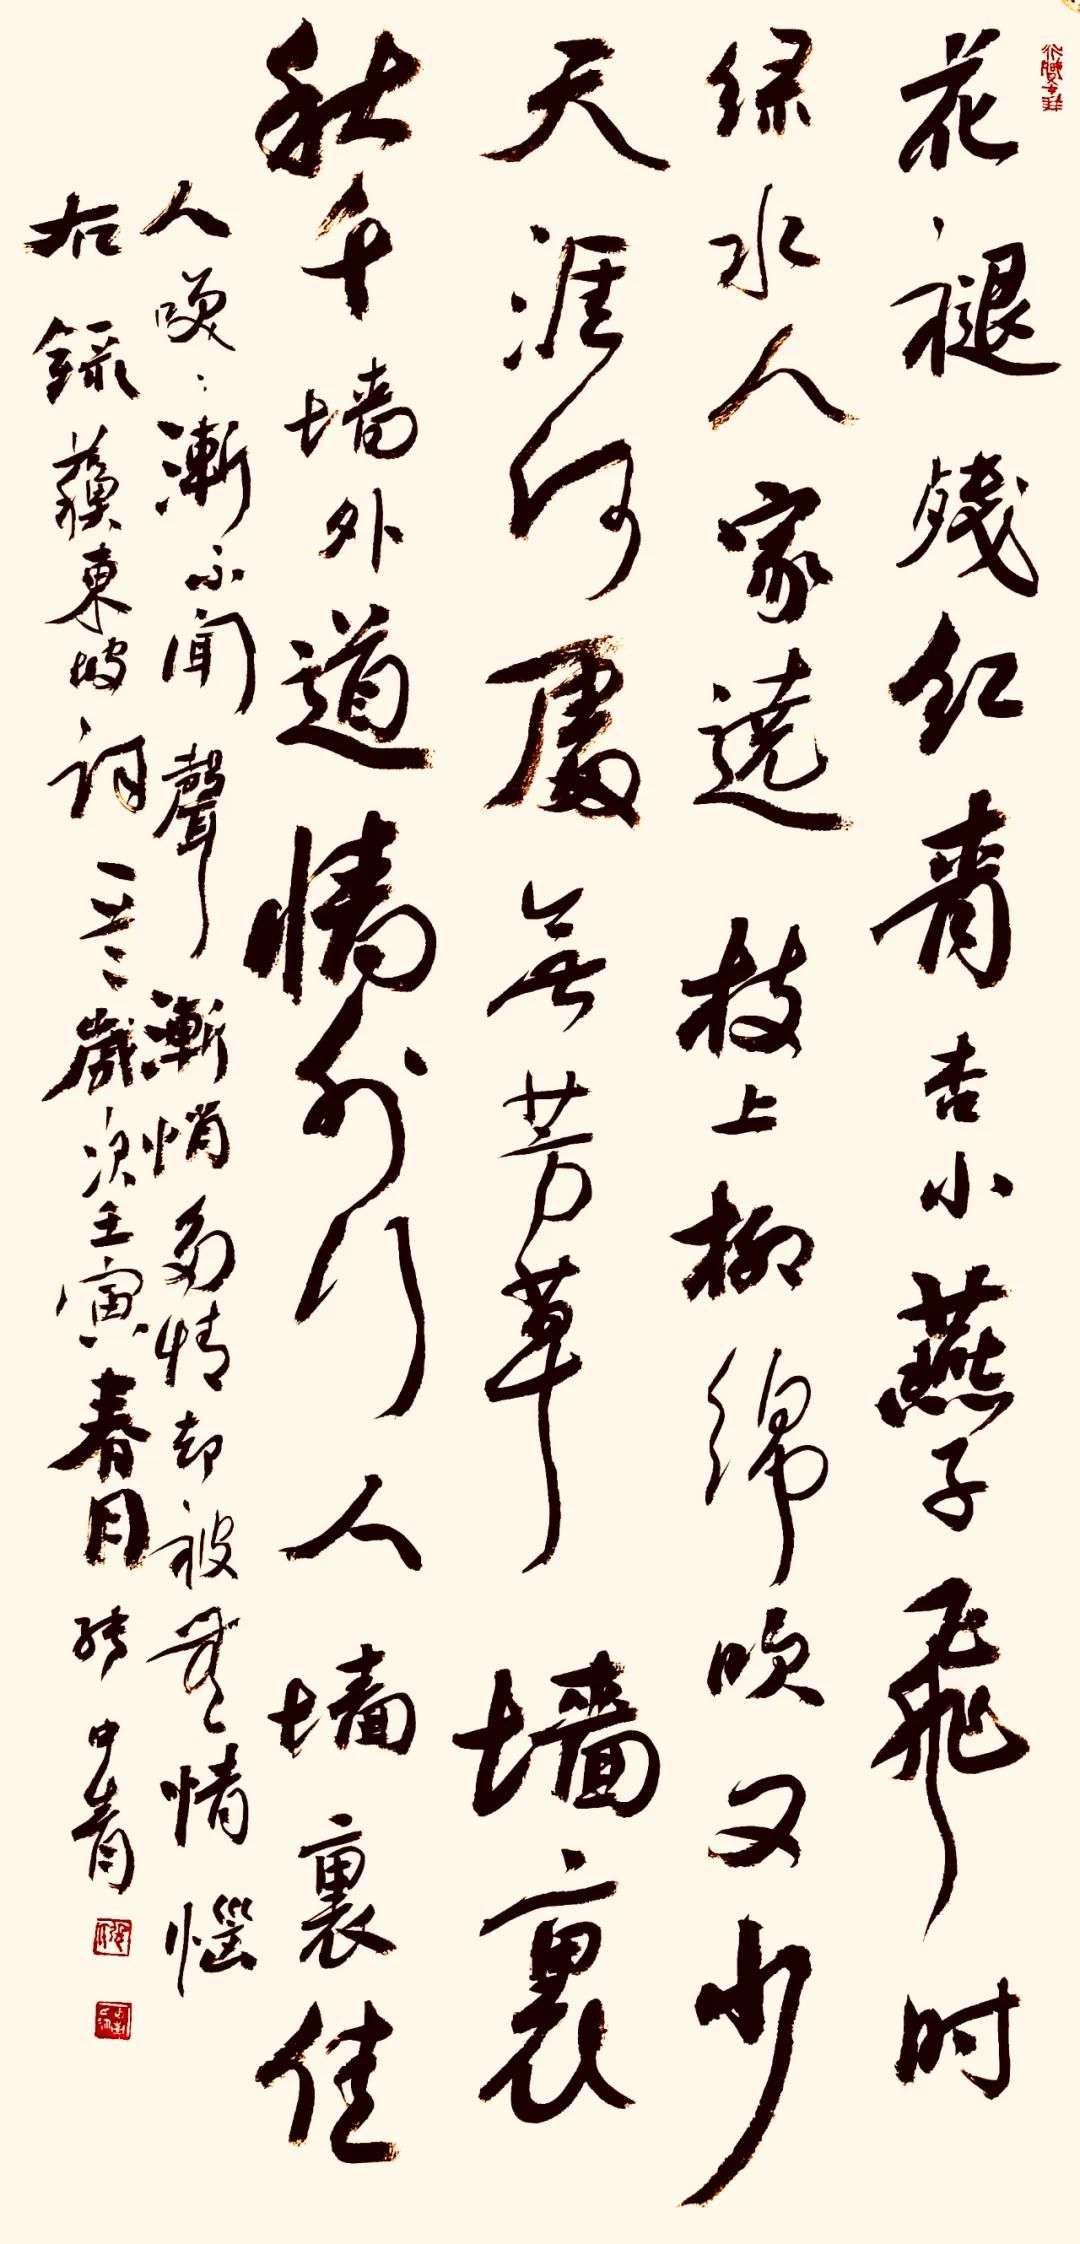 花褪残红青杏小燕子飛时
绿水人家遶枝上柳綿吹又少
天涯何處無芳草墙裏
秋千墙外道墙外行人墙裏佳
人笑漸不闻聲漸悄多情却被無情惱
右錄蘇東坡词歲次壬寅春月中青